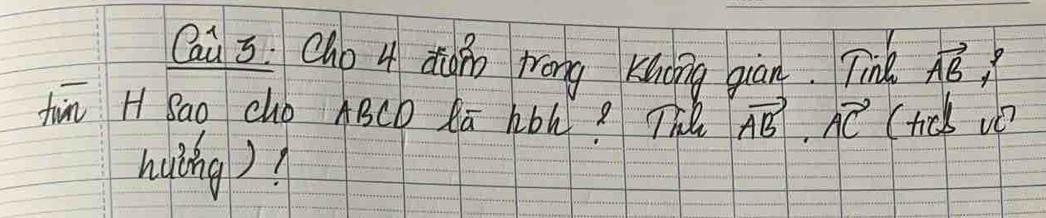 Câu 3: Cho 4 điểm trong không gian. Tính AB→ ?
tìm H sao cho ABCD là hbh ? Tính AB→ . AC→ (tích vô
hướng) ?